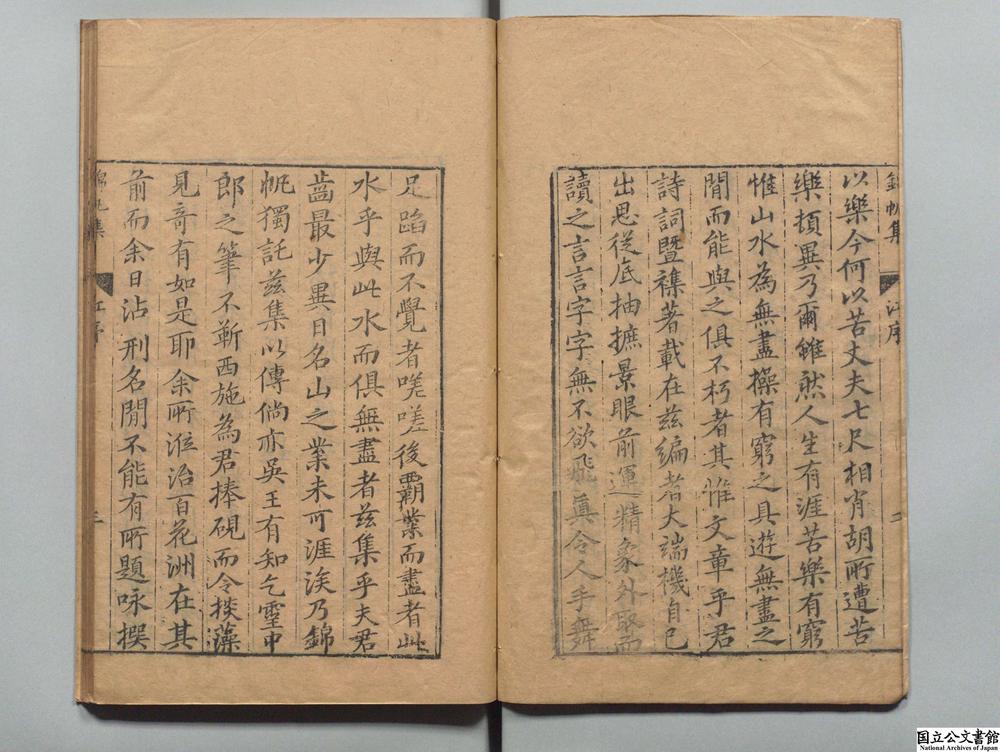 錦帆集 江序 二
以樂今何以苦丈夫七尺相肖胡所遭苦
樂頓異乃爾雖然人生有涯苦樂有窮
惟山水為無盡操有窮之具遊無盡之
間而能與之俱不朽者其惟文章乎君
詩詞暨襍著載在茲編者大端機自己
出思從底抽摭景眼前運精象外取而
讀之言言字字無不欲飛真令人手舞
足蹈而不覺者嗟嗟後霸業而盡者此
水乎與此水而俱無盡者茲集乎夫君
齒最少異日名山之業未可涯涘乃錦
帆獨託茲集以傳倘亦吳王有知乞靈中
郎之筆不蘄西施為君捧硯而令掞藻
見奇有如是耶余所涖治百花洲在其
前而余日沾刑名間不能有所題咏撰
錦帆集 江序 三
国立公文書館
National Archives of Japan